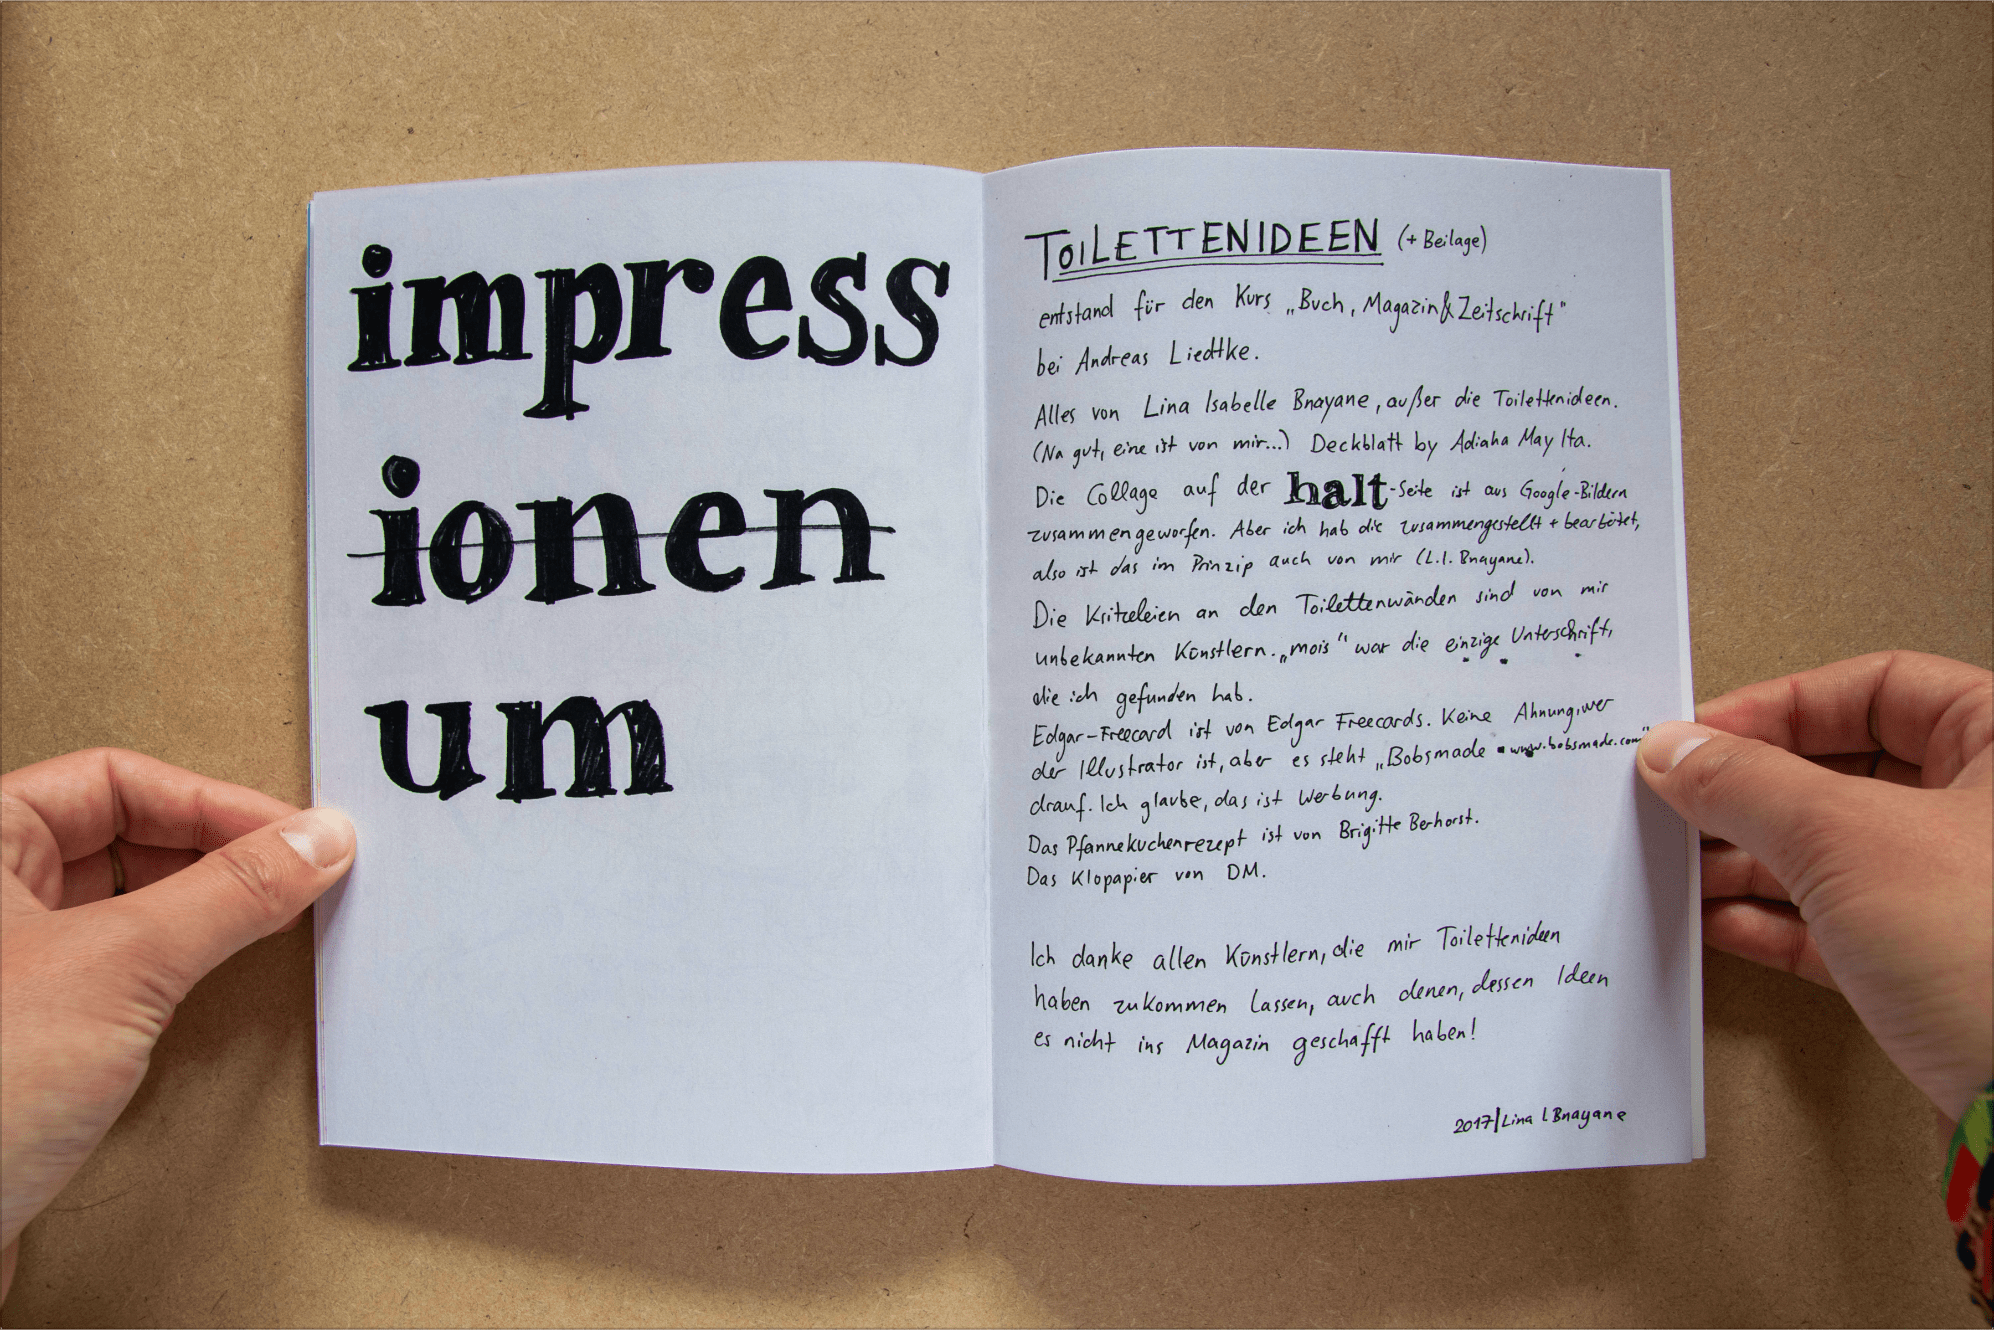 impress
ionen
um
TOILETTENIDEEN (+ Beilage)
entstand für den Kurs „Buch, Magazin & Zeitschrift"
bei Andreas Liedtke.
Alles von Lina Isabelle Bnayane, außer die Toilettenideen.
(Na gut, eine ist von mir...) Deckblatt by Adiaha May Ita.
Die Collage auf der halt-Seite ist aus Google-Bildern
zusammengeworfen. Aber ich hab die zusammengestellt + bearbeitet,
also ist das im Prinzip auch von mir (L.I. Bnayane).
Die Kritzeleien an den Toilettenwänden sind von mir
unbekannten Künstlern. „mois" war die einzige Unterschrift,
die ich gefunden hab.
Edgar-Freecard ist von Edgar Freecards. Keine Ahnung, wer
der Illustrator ist, aber es steht „Bobsmade • www.bobsmade.com"
drauf. Ich glaube, das ist Werbung.
Das Pfannekuchenrezept ist von Brigitte Berhorst.
Das Klopapier von DM.
Ich danke allen Künstlern, die mir Toilettenideen
haben zukommen lassen, auch denen, dessen Ideen
es nicht ins Magazin geschafft haben!
2017 | Lina I Bnayane